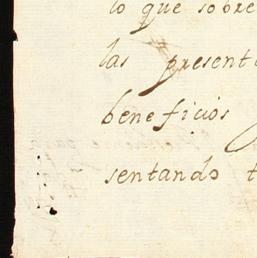 lo que sobre
las present
beneficios
sentando t